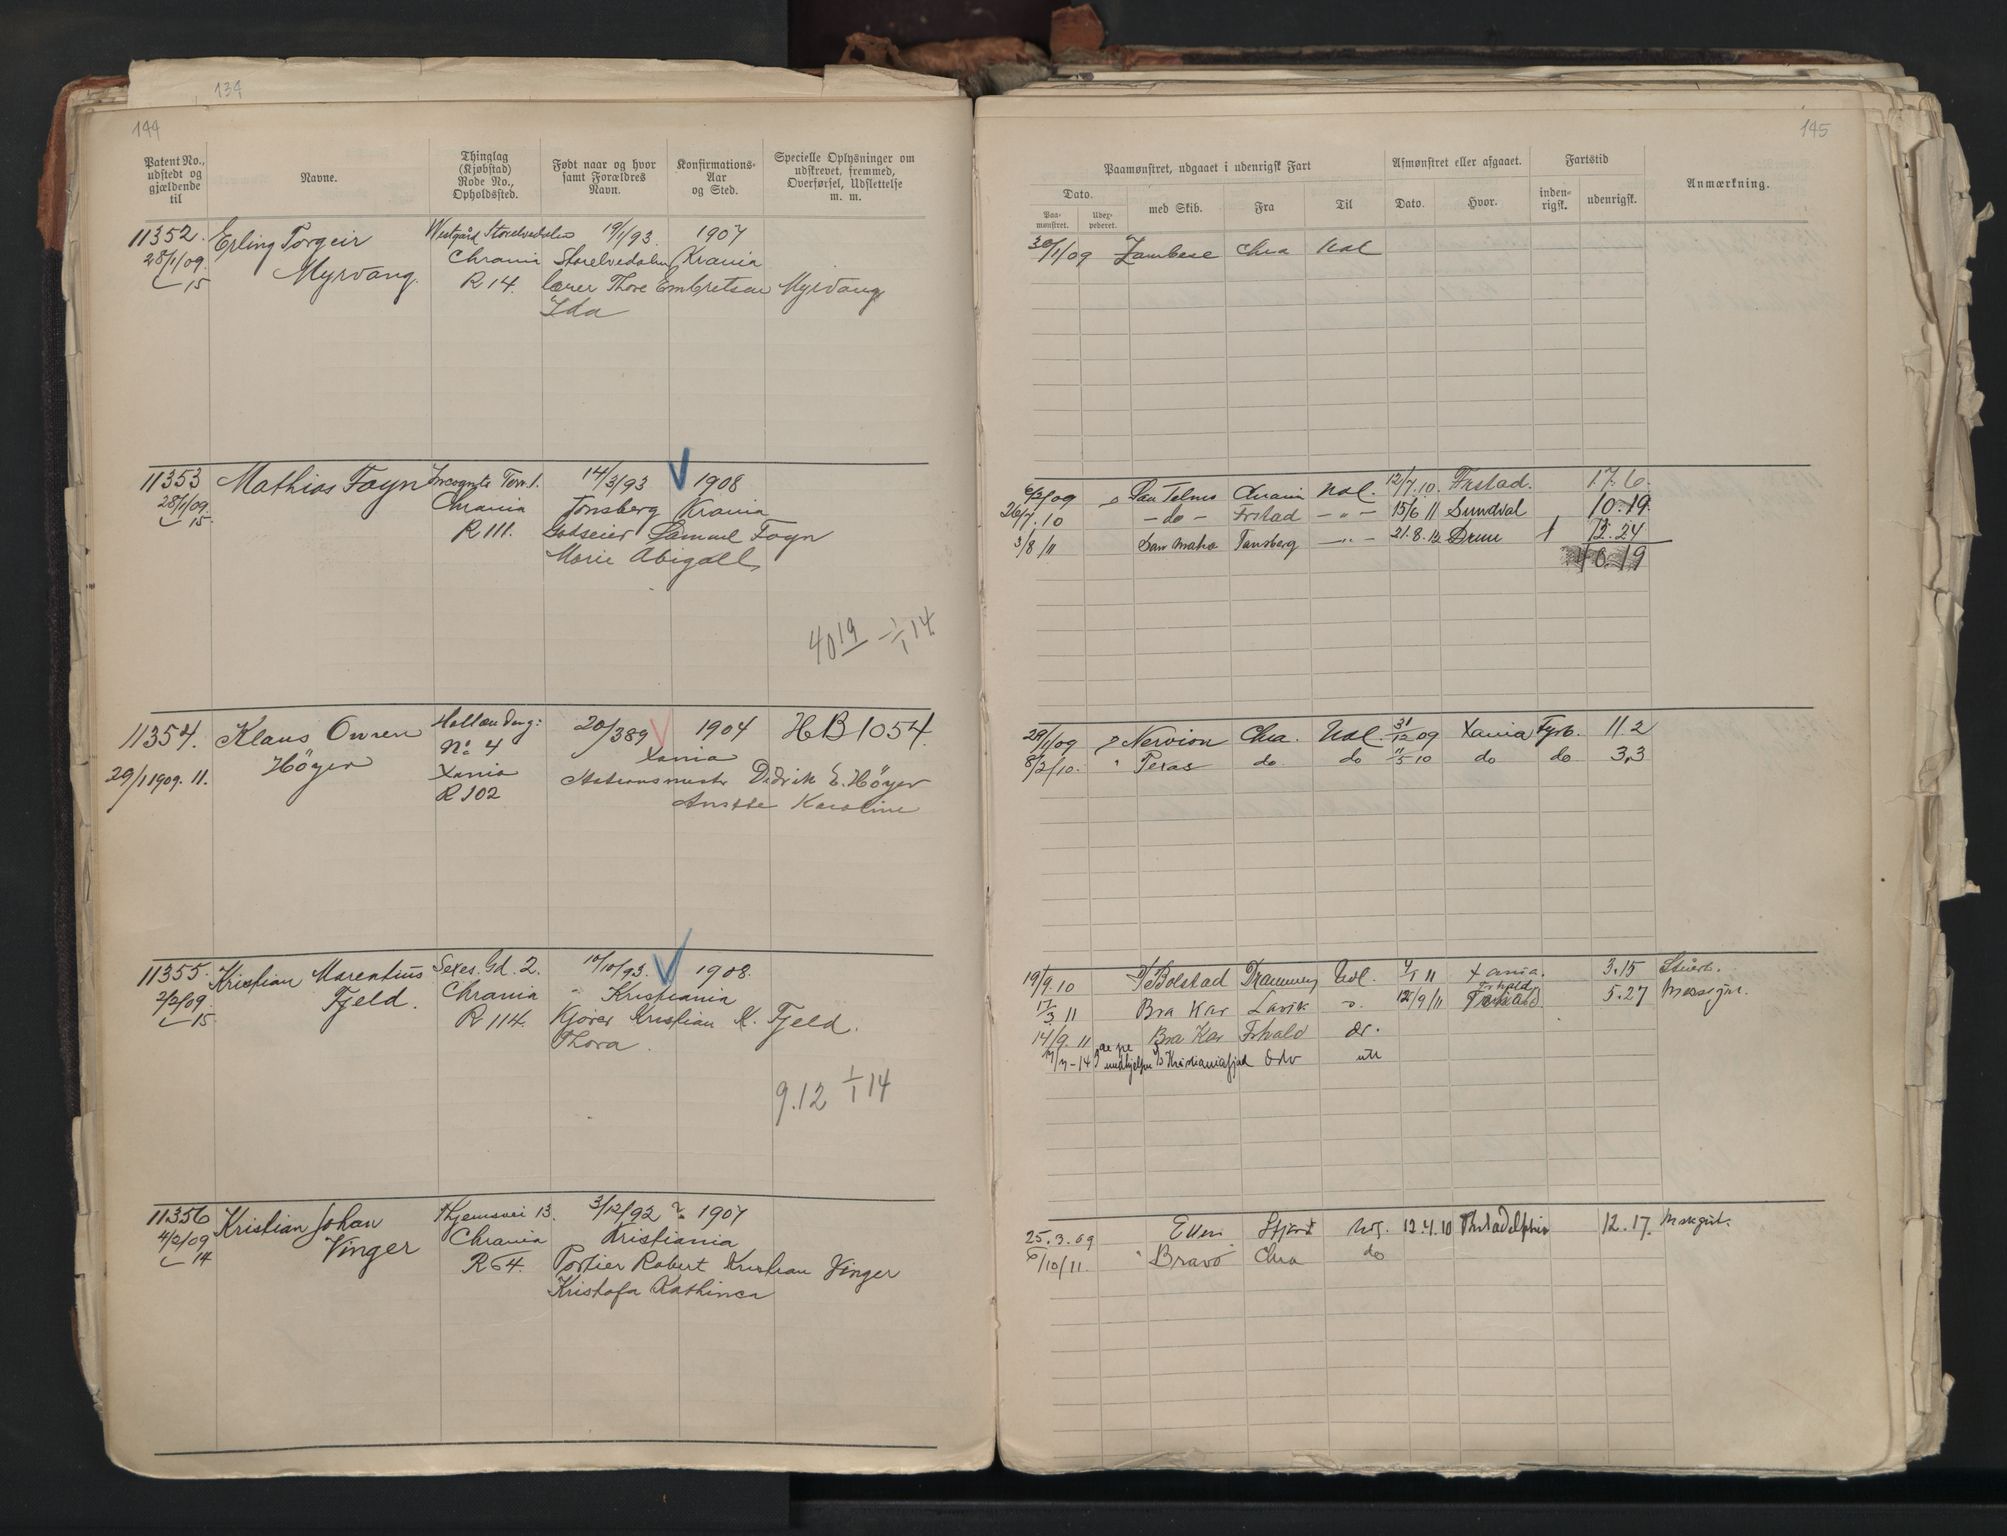 134
144
Patent No., udstedt og gjældende til
Navne.
Thinglag (Kjøbstad) Rode No., Opholdssted.
Født naar og hvor samt Forældres Navn.
Konfirmations-Aar og Sted.
Specielle Oplysninger om udskrevet, fremmed, Overførsel, Udslettelse m. m.
11352. Erling Torgeir Westgård Storelvedalen 19/1/93. 1907
28/1/09. Myrvang. Chrania Storelvedalen Krania
15 R 14. lærer Thore Embretsen Myrvang
Ida
11353 Mathias Foyn Incognito Terr. 1. 14/3/93 1908
28/1/09. Chrania Tønsberg Krania
15. R 111. Godseier Samuel Foyn
Marie Abigael
40 19 - 1/1 14
11354. Klaus Høyer Hollænderg: 20/389 1904 HB 1054.
No 4 Xania
29/1 1909. 11. Xania Stationsmester Didrik E. Høyer
R 102 Karoline
11355. Kristian Marentius Gd. 2. 10/10/93. 1908.
2/2/09. Fjeld. Chrania Kristiania
15. R 114. Kjører Kristian K. Fjeld.
Thora.
9.12 1/1 14
11356 Kristian Johan 13. 3/12/92 1907
4/2/09 Vinger Chrania Kristiania
14 R 64. Portier Robert Kristian Vinger
Kristofa Kathinca
145
Paamønstret, udgaaet i udenrigsk Fart
Afmønstret eller afgaaet.
Fartstid
Anmærkning.
Dato.
Paa-mønstret.
Udex-pederet.
med Skib.
Fra
Til
Dato.
Hvor.
inden-rigsk.
udenrigsk.
30/1/09 Zambese Chra Udl
6/2/09 San Telmo Chrania Udl. 12/7.10. Frstad. 17.6.
26/7.10 - do - Frstad - " - 15/6 11 Sundval 10.19.
3/8/11 Tønsberg - " - 21.8.12 Drm 1 12.24
40.19
29/1/09 Nervion Chra. Udl. 31/12 09 Xania Fyrb. 11 2
8/2/10. " Texas do do 11/5 10 do do 3,3
19/9.10 Bolstad Drammen Udl. 11 Xania. 3.15
17/3 11 Bra Kar Larvik 12/9/11 5.27
14/9.11 Bra Kar Frhald
Kristianiafjord
25.3.09 Ellen 12.4.10 Philadelphia 12.17.
6/10/11. " Bravo Chra do